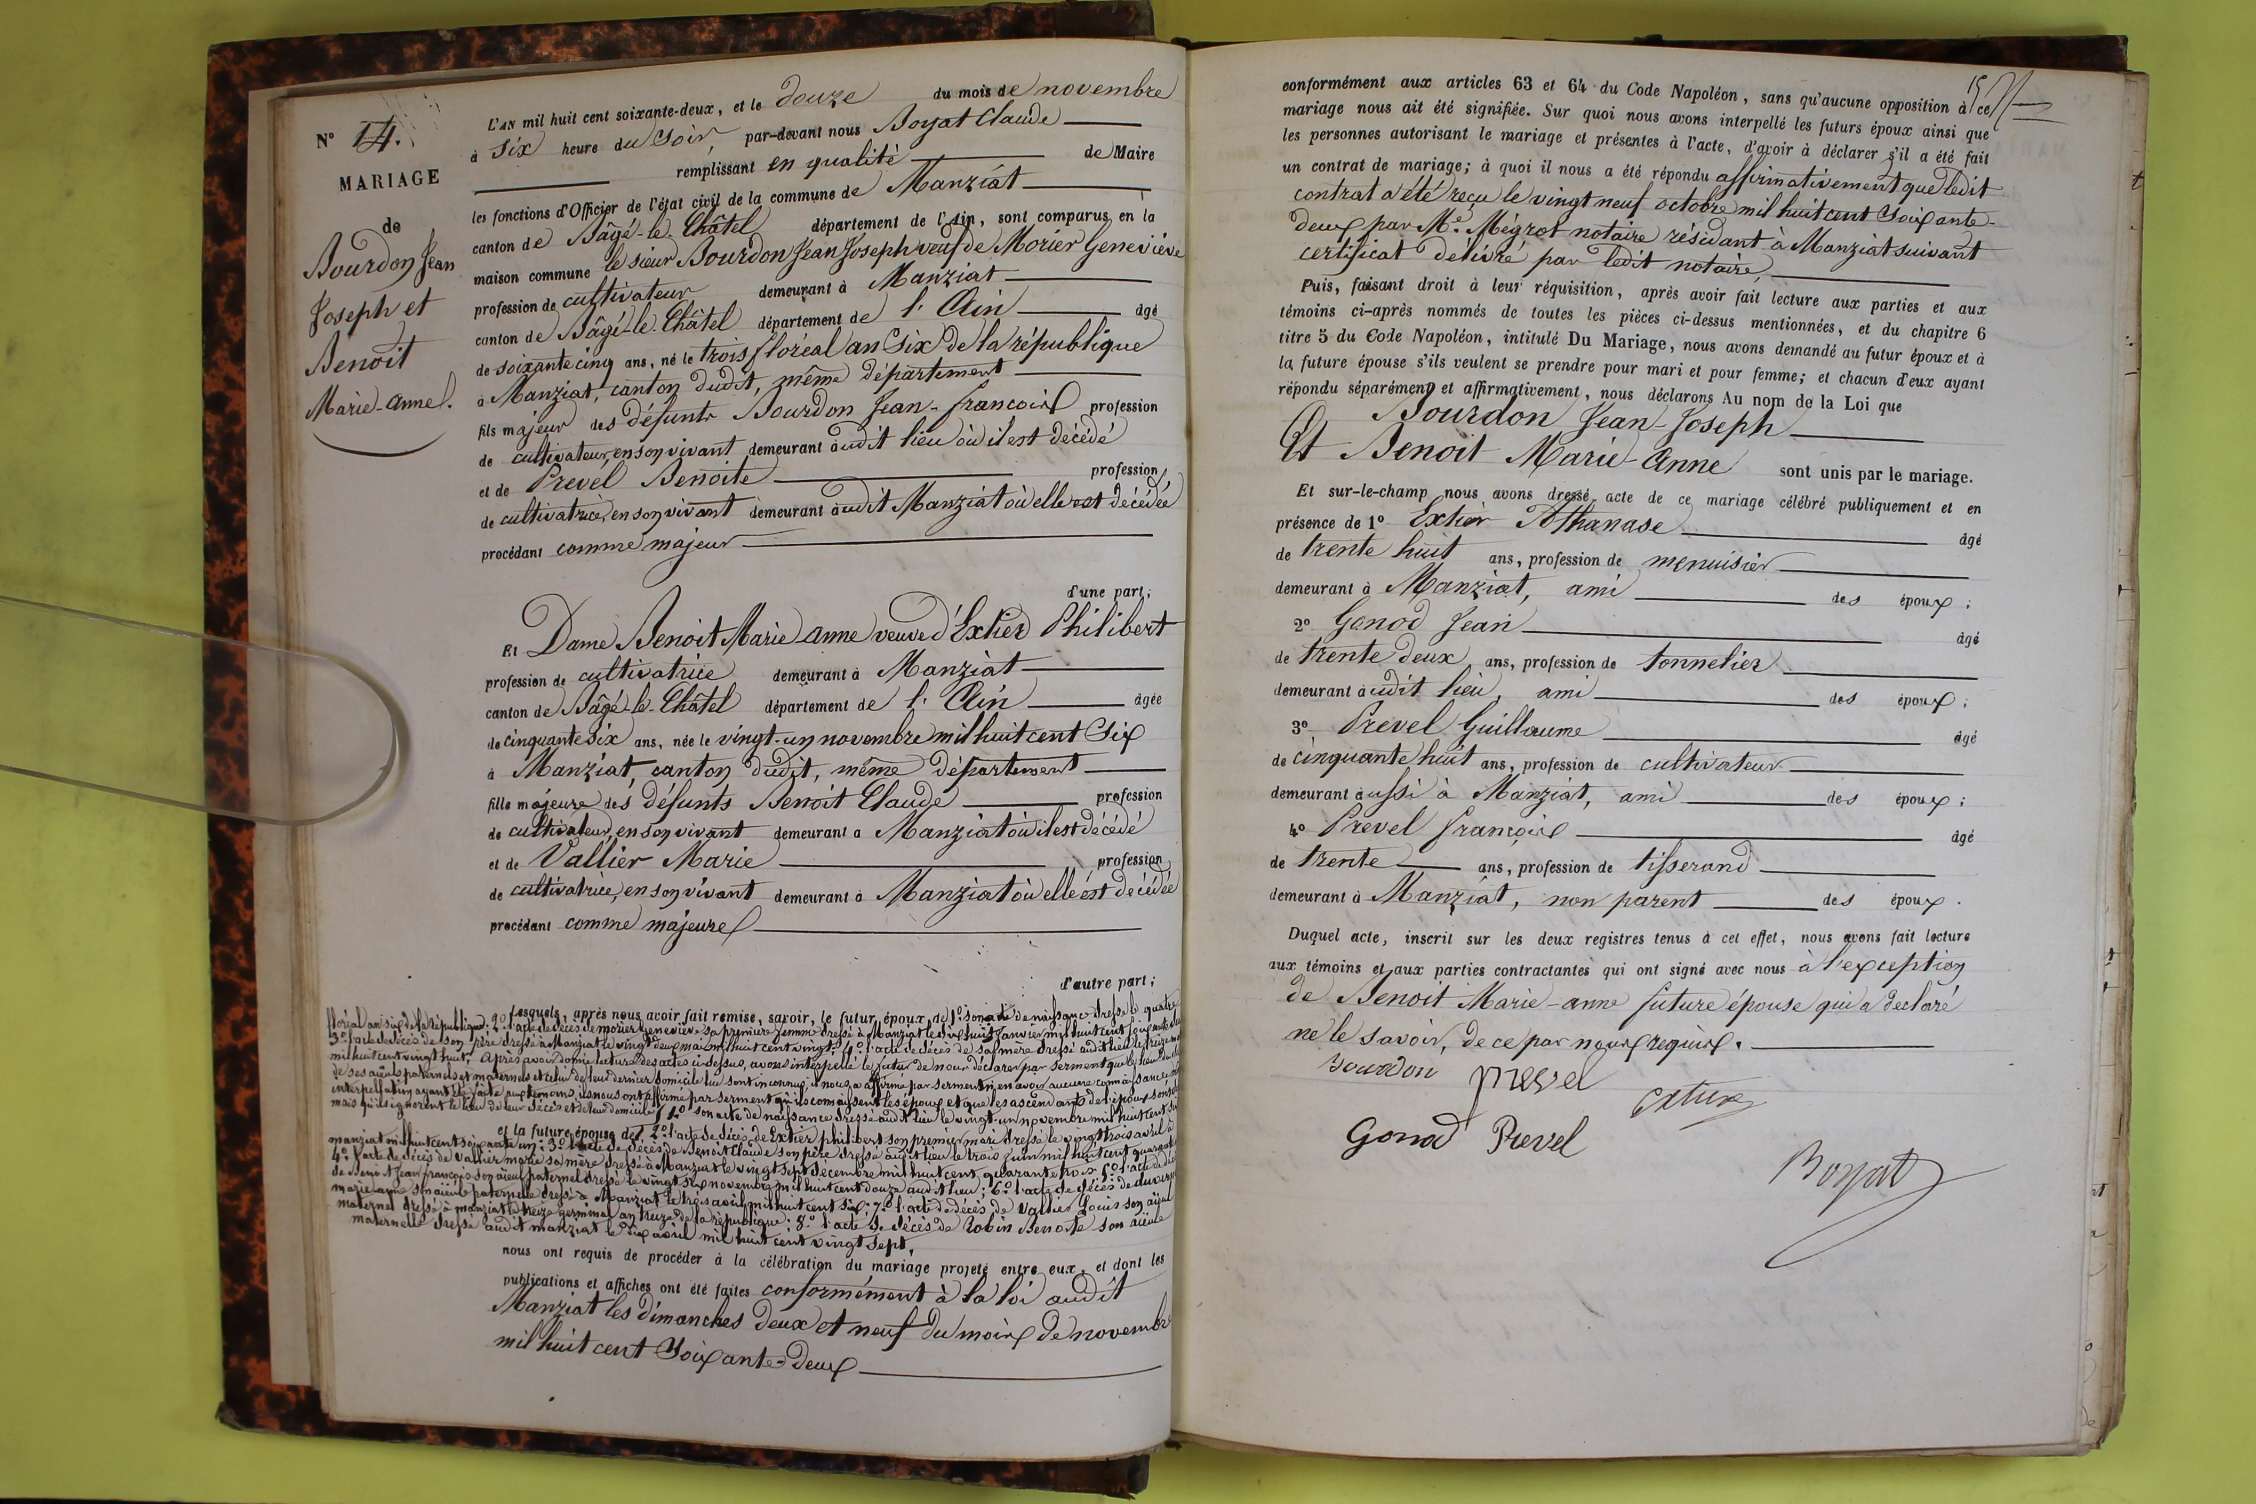 N° 14.
MARIAGE
de
Bourdon Jean
Joseph et
Benoit
Marie-anne.
L'AN mil huit cent soixante-deux, et le douze du mois de novembre
à six heure du soir, par-devant nous Boyat Claude
remplissant en qualité de Maire
les fonctions d'Officier de l'état civil de la commune de Manziat
canton de Bâgé-le-Châtel département de l'Ain, sont comparus en la
maison commune le sieur Bourdon Jean Joseph veuf de Morier Geneviève
profession de cultivateur demeurant à Manziat
canton de Bâgé-le-Châtel département de l'Ain âgé
de soixante cinq ans, né le trois floréal an six de la république
à Manziat, canton dudit, même département
fils majeur des défunts Bourdon Jean-françois profession
de cultivateur, en son vivant demeurant audit lieu où il est décédé
et de Prevel Benoite profession
de cultivatrice, en son vivant demeurant audit Manziat où elle est décédée
procédant comme majeur
d'une part;
Et Dame Benoit Marie anne veuve d'Extier Philibert
profession de cultivatrice demeurant à Manziat
canton de Bâgé-le-Châtel département de l'Ain âgée
de cinquante six ans, née le vingt-un novembre mil huit cent six
à Manziat, canton dudit, même département
fille majeure des défunts Benoit Claude profession
de cultivateur, en son vivant demeurant à Manziat où il est décédé
et de Vallier Marie profession
de cultivatrice, en son vivant demeurant à Manziat où elle est décédée
procédant comme majeure
d'autre part;
Lesquels, après nous avoir fait remise, savoir, le futur époux, de 1° son acte de naissance dressé le quatre
floréal an six de la république; 2° l'acte de décès de morier Geneviève sa première femme dressé à Manziat le dix huit Janvier mil huit cent soixante
3° l'acte de décès de son père dressé à Manziat le vingt deux mai mil huit cent vingt; 4° l'acte de décès de sa mère dressé audit lieu le treize
mil huit cent vingt huit. Après avoir donné lecture des actes ci-dessus, avons interpellé le futur de nous déclarer par serment que le lieu du
de ses aïeuls paternels et maternels et celui de leur dernier domicile lui sont inconnus, il nous a affirmé par serment n'en avoir aucune connaissance
interpellation ayant été faite aux témoins, ils nous ont affirmé par serment qu'ils connaissent les époux et que les ascendants de l'époux sont
mais qu'ils ignorent le lieu de leur décès et de leur domicile
et la future épouse de 1° son acte de naissance dressé audit lieu le vingt-un novembre mil huit cent six
2° l'acte de décès de Extier philibert son premier mari dressé le vingt trois avril à
manziat mil huit cent soixante un; 3° l'acte de décès de Benoit Claude son père dressé audit lieu le trois Juin mil huit cent
4° l'acte de décès de Vallier marie sa mère dressé à Manziat le vingt sept décembre mil huit cent quarante trois 5° l'acte de décès
de Benoit Jean françois son aïeul paternel dressé le vingt six novembre mil huit cent douze audit lieu; 6° l'acte de décès de
marie anne son aïeule paternelle dressé à Manziat le trois avril mil huit cent six; 7° l'acte de décès de Vallier Louis son aïeul
maternel dressé à manziat le treize germinal an treize de la république; 8° l'acte de décès de Robin Benoite son aïeule
maternelle dressé audit manziat le dix avril mil huit cent vingt sept,
nous ont requis de procéder à la célébration du mariage projeté entre eux, et dont les
publications et affiches ont été faites conformément à la loi audit
Manziat les dimanches deux et neuf du mois de novembre
mil huit cent soixante-deux
15
conformément aux articles 63 et 64 du Code Napoléon, sans qu'aucune opposition à ce
mariage nous ait été signifiée. Sur quoi nous avons interpellé les futurs époux ainsi que
les personnes autorisant le mariage et présentes à l'acte, d'avoir à déclarer s'il a été fait
un contrat de mariage; à quoi il nous a été répondu affirmativement que ledit
contrat a été reçu le vingt neuf octobre mil huit cent soixante-
deux par Me. Mégrot notaire résidant à Manziat suivant
certificat délivré par ledit notaire
Puis, faisant droit à leur réquisition, après avoir fait lecture aux parties et aux
témoins ci-après nommés de toutes les pièces ci-dessus mentionnées, et du chapitre 6
titre 5 du Code Napoléon, intitulé Du Mariage, nous avons demandé au futur époux et à
la future épouse s'ils veulent se prendre pour mari et pour femme; et chacun d'eux ayant
répondu séparément et affirmativement, nous déclarons Au nom de la Loi que
Bourdon Jean-Joseph
Et Benoit Marie-Anne sont unis par le mariage.
Et sur-le-champ nous avons dressé acte de ce mariage célébré publiquement et en
présence de 1° Extier Athanase âgé
de trente huit ans, profession de menuisier
demeurant à Manziat, ami des époux;
2° Gonod Jean âgé
de trente deux ans, profession de tonnelier
demeurant audit lieu, ami des époux;
3° Prevel Guillaume âgé
de cinquante huit ans, profession de cultivateur
demeurant aussi à Manziat, ami des époux;
4° Prevel françois âgé
de trente ans, profession de tisserand
demeurant à Manziat, non parent des époux.
Duquel acte, inscrit sur les deux registres tenus à cet effet, nous avons fait lecture
aux témoins et aux parties contractantes qui ont signé avec nous à l'exception
de Benoit Marie-anne future épouse qui a déclaré
ne le savoir, de ce par nous requis.
Bourdon prevel
extier
Gonod Prevel
Boyat